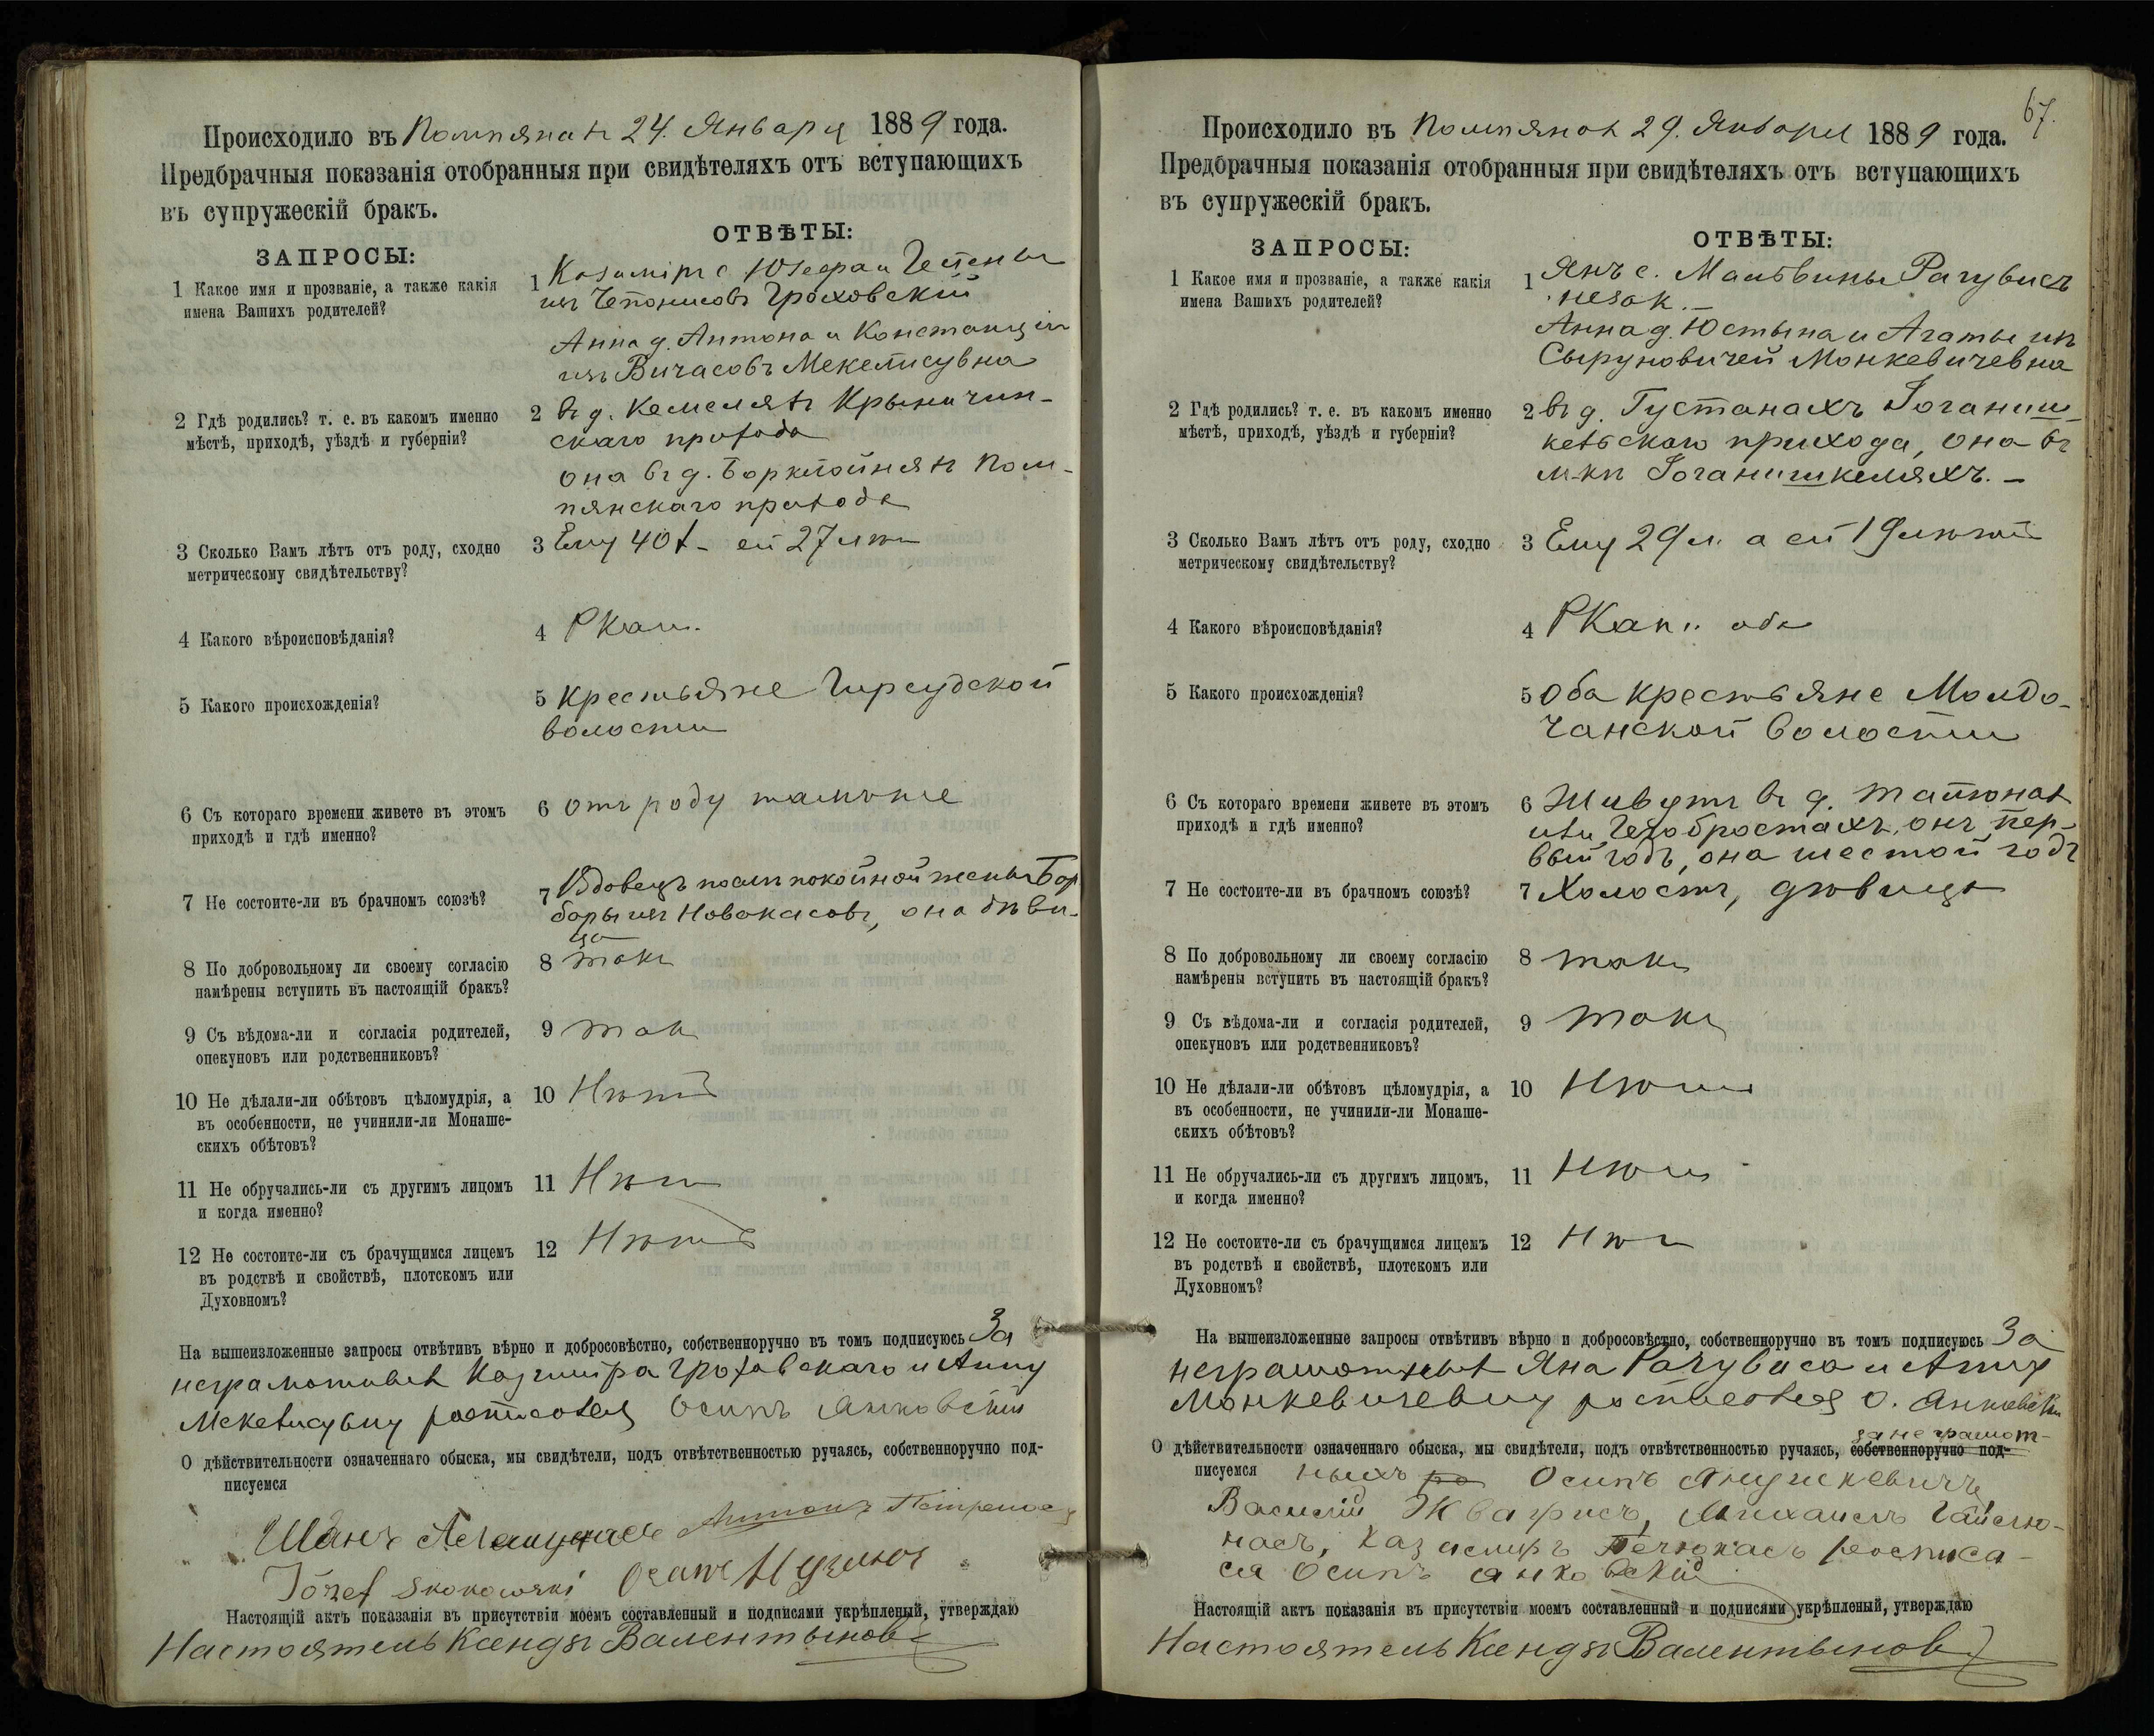 Происходило въ Помпянахъ 24. Января 1889 года.
Предбрачныя показанія отобранныя при свидѣтеляхъ отъ вступающихъ
въ супружескій бракъ.
ЗАПРОСЫ:
ОТВѢТЫ:
1 Какое имя и прозваніе, а также какія
имена Вашихъ родителей?
1 Казиміръ с. Юзефа и
изъ Гроховскій
Анна д. Антона и Констанціи
изъ Вичасовъ
2 Гдѣ родились? т. е. въ какомъ именно
мѣстѣ, приходѣ, уѣздѣ и губерніи?
2 въ д. Крыничин-
скаго прихода
она въ д. Пом-
пянскаго прихода
3 Сколько Вамъ лѣтъ отъ роду, сходно
метрическому свидѣтельству?
3 Ему 40 л. ей 27 лѣтъ
4 Какого вѣроисповѣданія?
4 РКат.
5 Какого происхожденія?
5 Крестьяне Гирсудской
волости
6 Съ котораго времени живете въ этомъ
приходѣ и гдѣ именно?
6 отъ роду тамъ же
7 Не состоите-ли въ брачномъ союзѣ?
7 Вдовецъ послѣ покойной жены Бар
бары изъ Новакасовъ, она дѣви-
ца
8 По добровольному ли своему согласію
намѣрены вступить въ настоящій бракъ?
8 такъ
9 Съ вѣдома-ли и согласія родителей,
опекуновъ или родственниковъ?
9 такъ
10 Не дѣлали-ли обѣтовъ цѣломудрія, а
въ особенности, не учинили-ли Монаше-
скихъ обѣтовъ?
10 Нѣтъ
11 Не обручались-ли съ другимъ лицомъ
и когда именно?
11 Нѣтъ
12 Не состоите-ли съ брачущимся лицемъ
въ родствѣ и свойствѣ, плотскомъ или
Духовномъ?
12 Нѣтъ
На вышеизложенные запросы отвѣтивъ вѣрно и добросовѣстно, собственноручно въ томъ подписуюсь За
неграмотныхъ Казиміра Гроховскаго и Анну
росписался Осипъ Янковскій
О дѣйствительности означеннаго обыска, мы свидѣтели, подъ отвѣтственностью ручаясь, собственноручно под-
писуемся
Антонъ
Józef Skokowski
Настоящій актъ показанія въ присутствіи моемъ составленный и подписями укрѣпленый, утверждаю
Настоятель Ксендзъ Валентыновъ
67.
Происходило въ Помпянахъ 29. Января 1889 года.
Предбрачныя показанія отобранныя при свидѣтеляхъ отъ вступающихъ
въ супружескій бракъ.
ЗАПРОСЫ:
ОТВѢТЫ:
1 Какое имя и прозваніе, а также какія
имена Вашихъ родителей?
1 Янъ с. Мальвины Рагувисъ
незак. —
Анна д. Юстына и Агаты изъ
Сыруновичей Монкевичевна
2 Гдѣ родились? т. е. въ какомъ именно
мѣстѣ, приходѣ, уѣздѣ и губерніи?
2 въ д. Густанахъ Іоганиш-
кельскаго прихода, она въ
м-кѣ Іоганишкеляхъ. —
3 Сколько Вамъ лѣтъ отъ роду, сходно
метрическому свидѣтельству?
3 Ему 29 л. а ей 19 лѣтъ
4 Какого вѣроисповѣданія?
4 РКат. оба
5 Какого происхожденія?
5 Оба крестьяне Молдо-
чанской волости
6 Съ котораго времени живете въ этомъ
приходѣ и гдѣ именно?
6 Живутъ въ д.
онъ пер-
вый годъ, она шестой годъ
7 Не состоите-ли въ брачномъ союзѣ?
7 Холостъ, дѣвица
8 По добровольному ли своему согласію
намѣрены вступить въ настоящій бракъ?
8 такъ
9 Съ вѣдома-ли и согласія родителей,
опекуновъ или родственниковъ?
9 такъ
10 Не дѣлали-ли обѣтовъ цѣломудрія, а
въ особенности, не учинили-ли Монаше-
скихъ обѣтовъ?
10 Нѣтъ
11 Не обручались-ли съ другимъ лицомъ,
и когда именно?
11 Нѣтъ
12 Не состоите-ли съ брачущимся лицемъ
въ родствѣ и свойствѣ, плотскомъ или
Духовномъ?
12 Нѣтъ
На вышеизложенные запросы отвѣтивъ вѣрно и добросовѣстно, собственноручно въ томъ подписуюсь За
неграмотныхъ Яна Рагувиса и Анну
Монкевичевну росписался О. Янковскій
О дѣйствительности означеннаго обыска, мы свидѣтели, подъ отвѣтственностью ручаясь, собственноручно под-
за неграмот-
писуемся ныхъ Осипъ Янушкевичъ
Василій Михаилъ
Казимиръ росписа-
ся Осипъ Янковскій
Настоящій актъ показанія въ присутствіи моемъ составленный и подписями укрѣпленый, утверждаю
Настоятель Ксендзъ Валентыновъ